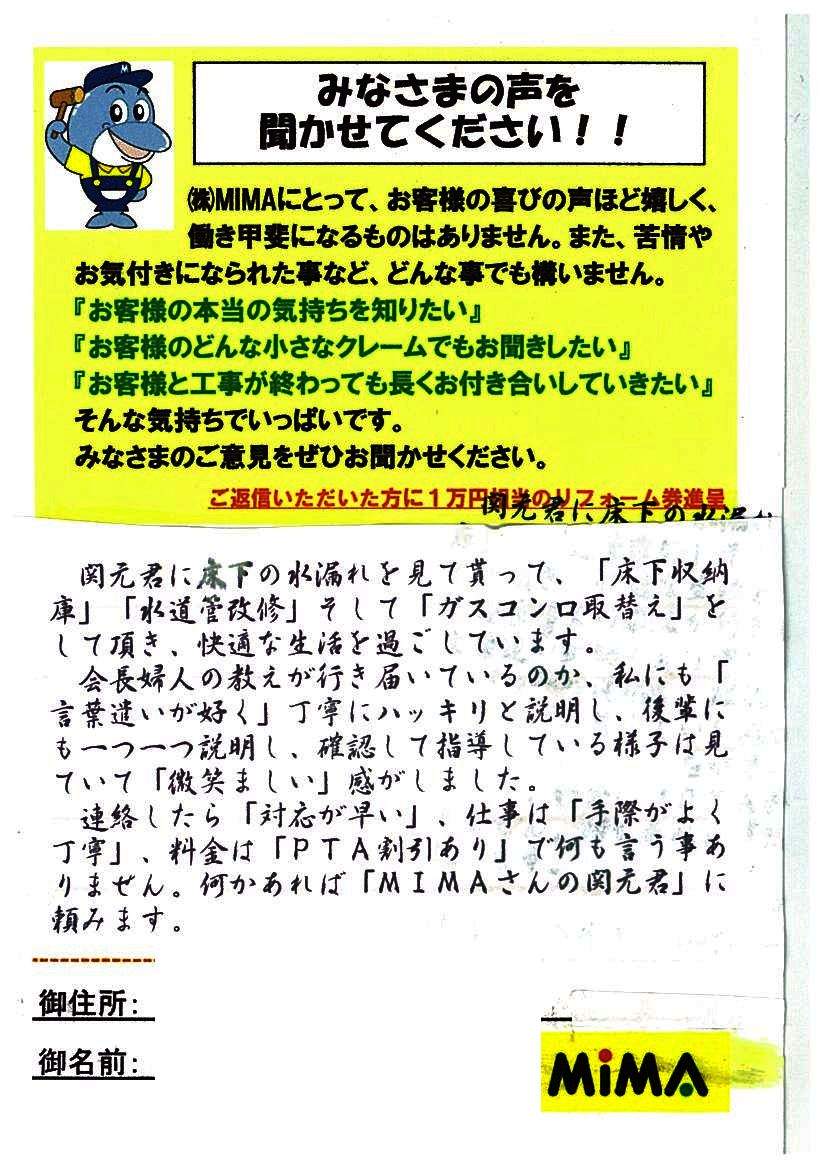 みなさまの声を
聞かせてください！！
㈱MIMAにとって、お客様の喜びの声ほど嬉しく、
働き甲斐になるものはありません。また、苦情や
お気付きになられた事など、どんな事でも構いません。
『お客様の本当の気持ちを知りたい』
『お客様のどんな小さなクレームでもお聞きしたい』
『お客様と工事が終わっても長くお付き合いしていきたい』
そんな気持ちでいっぱいです。
みなさまのご意見をぜひお聞かせください。
ご返信いただいた方に１万円相当のリフォーム券進呈
関元君に床下の水漏
関元君に床下の水漏れを見て貰って、「床下収納
庫」「水道管改修」そして「ガスコンロ取替え」を
して頂き、快適な生活を過ごしています。
会長婦人の教えが行き届いているのか、私にも「
言葉遣いが好く」丁寧にハッキリと説明し、後輩に
も一つ一つ説明し、確認して指導している様子は見
ていて「微笑ましい」感がしました。
連絡したら「対応が早い」、仕事は「手際がよく
丁寧」、料金は「ＰＴＡ割引あり」で何も言う事あ
りません。何かあれば「ＭＩＭＡさんの関元君」に
頼みます。
御住所：
御名前：
MiMA
M